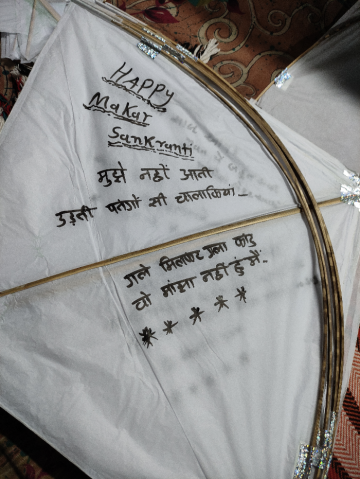 HAPPY
Makar
Sankranti
मुझे नहीं आती
उड़ती पतंगों सी चालाकियां
गले मिलकर गला काटु
वो मांझा नहीं हुं मैं..